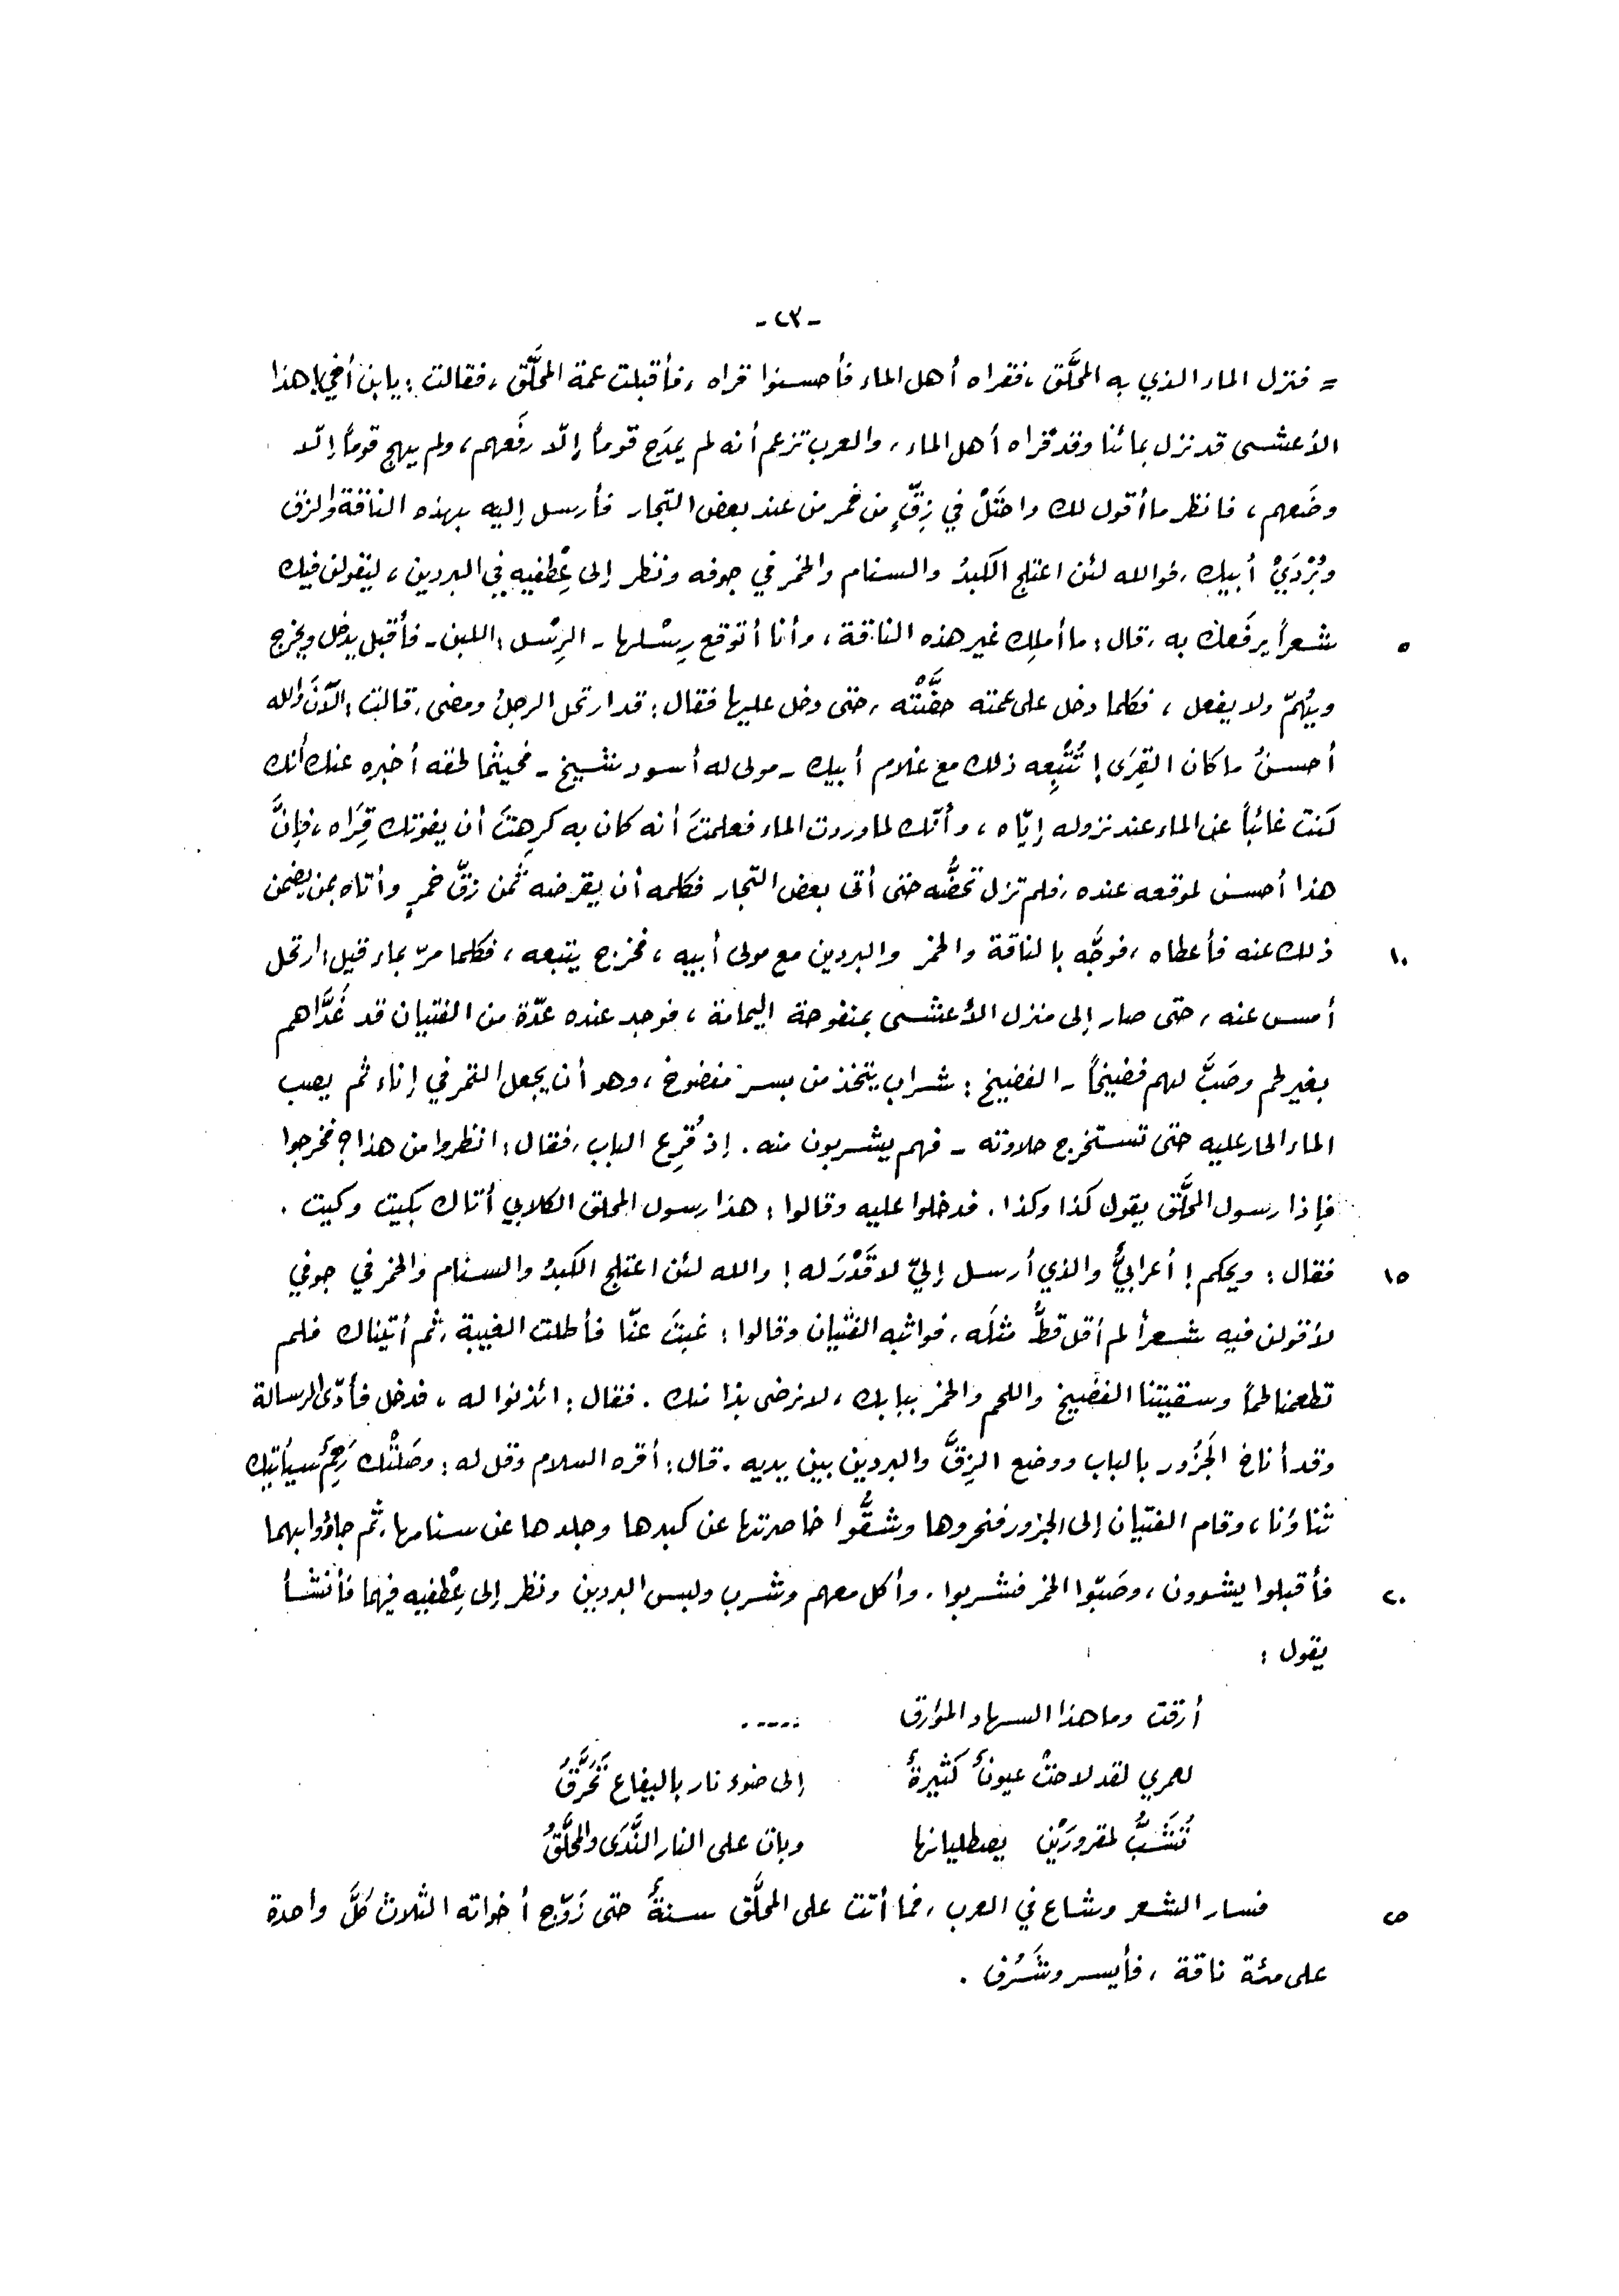 -٢٣-
= فنزل الماء الذي به المحلَّق، فقراه أهل الماء فأحسنوا قراه، فأقبلت عمة المحلَّق، فقالت: يا بن أخي! هذا
الأعشى قد نزل بمائنا وقد قراه أهل الماء، والعرب تزعم أنه لم يمدَح قوماً إلّا رفَعهم، ولم يهج قوماً إلّا
وضَعهم، فانظر ما أقول لك واحتَلْ في زِقٍّ من خمر من عند بعض التجار فأرسل إليه بهذه الناقة والزق
وبُرْدَيْ أبيك، فوالله لئن اعتلج الكبدُ والسنام والخمر في جوفه ونظر إلى عِطْفيه في البردين، ليقولن فيك
٥ شعراً يرفَعك به، قال: ما أملِك غير هذه الناقة، وأنا أتوقع رِسْلها - الرِسْل: اللبن - فأقبل يدخل ويخرج
ويُهِمّ ولا يفعل، فكلما دخل على عمته حضَّتْه، حتى دخل عليها فقال: قد ارتحل الرجلُ ومضى، قالت: الآنَ والله
أحسنُ ما كان القِرَى! تُتْبِعه ذلك مع غلام أبيك - مولى له أسود شيخ - فحيثما لحقه أخبره عنك أنك
كنت غائباً عن الماء عند نزوله إيّاه، وأنّك لما وردت الماء فعلمتَ أنه كان به كرِهتَ أن يفوتك قِرَاه، فإنَّ
هذا أحسن لموقعه عنده، فلم تزل تحضُّه حتى أتى بعض التجار فكلمه أن يقرضه ثمن زقّ خمرٍ وأتاه بمن يضمن
١٠ ذلك عنه فأعطاه، فوجَّه بالناقة والخمر والبردين مع مولى أبيه، فخرج يتبعه، فكلما مرّ بماء قيل: ارتحل
أمس عنه، حتى صار إلى منزل الأعشى بمنفوحة اليمامة، فوجد عنده عدّة من الفتيان قد غَدَّاهم
بغير لحم وصَبَّ لهم فضيخاً - الفضيخ: شراب يتخذ من بسر مفضوخ، وهو أن يجعل التمر في إناء ثم يصب
الماء الحار عليه حتى تستخرج حلاوته - فهم يشربون منه. إذ قُرِع الباب، فقال: انظروا من هذا؟ فخرجوا
فإذا رسول المحلَّق يقول كذا وكذا. فدخلوا عليه وقالوا: هذا رسول المحلق الكلابي أتاك بكيت وكيت.
١٥ فقال: ويحكم! أعرابيٌّ والذي أرسل إليّ لا قَدْرَ له! والله لئن اعتلج الكبدُ والسنام والخمر في جوفي
لأقولن فيه شعراً لم أقل قطُّ مثلَه، فواثبه الفتيان وقالوا: غبتَ عنّا فأطلت الغيبة، ثم أتيناك فلم
تطعمنا لحماً وسقيتنا الفضيخ واللحم والخمر ببابك، لا نرضى بذا منك. فقال: ائذنوا له، فدخل فأدّى الرسالة
وقد أناخ الجَزُور بالباب ووضع الزِقَّ والبردين بين يديه. قال: أقره السلام وقل له: وصَلتْك رَحِمٌ سيأتيك
ثناؤنا، وقام الفتيان إلى الجزور فنحروها وشقُّوا خاصرتها عن كبدها وجلدها عن سنامها، ثم جاؤوا بهما
٢٠ فأقبلوا يشوون، وصَبّوا الخمر فشربوا. وأكل معهم وشرب ولبس البردين ونظر إلى عِطْفيه فيهما فأنشأ
يقول:
أرقت وما هذا السهاد المؤرق .....
لعمري لقد لاحتْ عيونٌ كثيرةٌ إلى ضوء نار باليفاع تَحَرَّقُ
تُشَبُّ لمقرورَيْن يصطليانها وبات على النار النَّدَى والمحلَّقُ
٢٥ فسار الشعر وشاع في العرب، فما أتت على المحلَّق سنةٌ حتى زَوّج أخواته الثلاث كلَّ واحدة
على مئة ناقة، فأيسر وشَرُف.